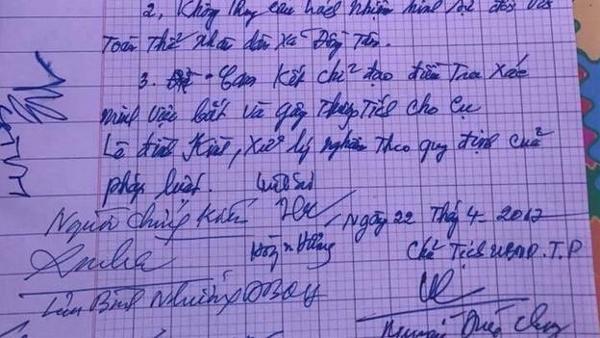 2, Không truy cứu trách nhiệm hình sự đối với
Toàn Thể nhân dân xã Đồng Tâm.
3. Cam Kết chỉ đạo điều Tra Xác
minh việc bắt và gây Thương Tích cho Cụ
Lê đình Kình, Xử lý nghiêm Theo quy định của
pháp luật. Luật sư
Người chứng kiến Ngày 22 Thág 4-2017
Hồng Chủ Tịch UBND.T.P
Lưu Bình Nhưỡng ĐBQH
Nguyễn Đức Chung